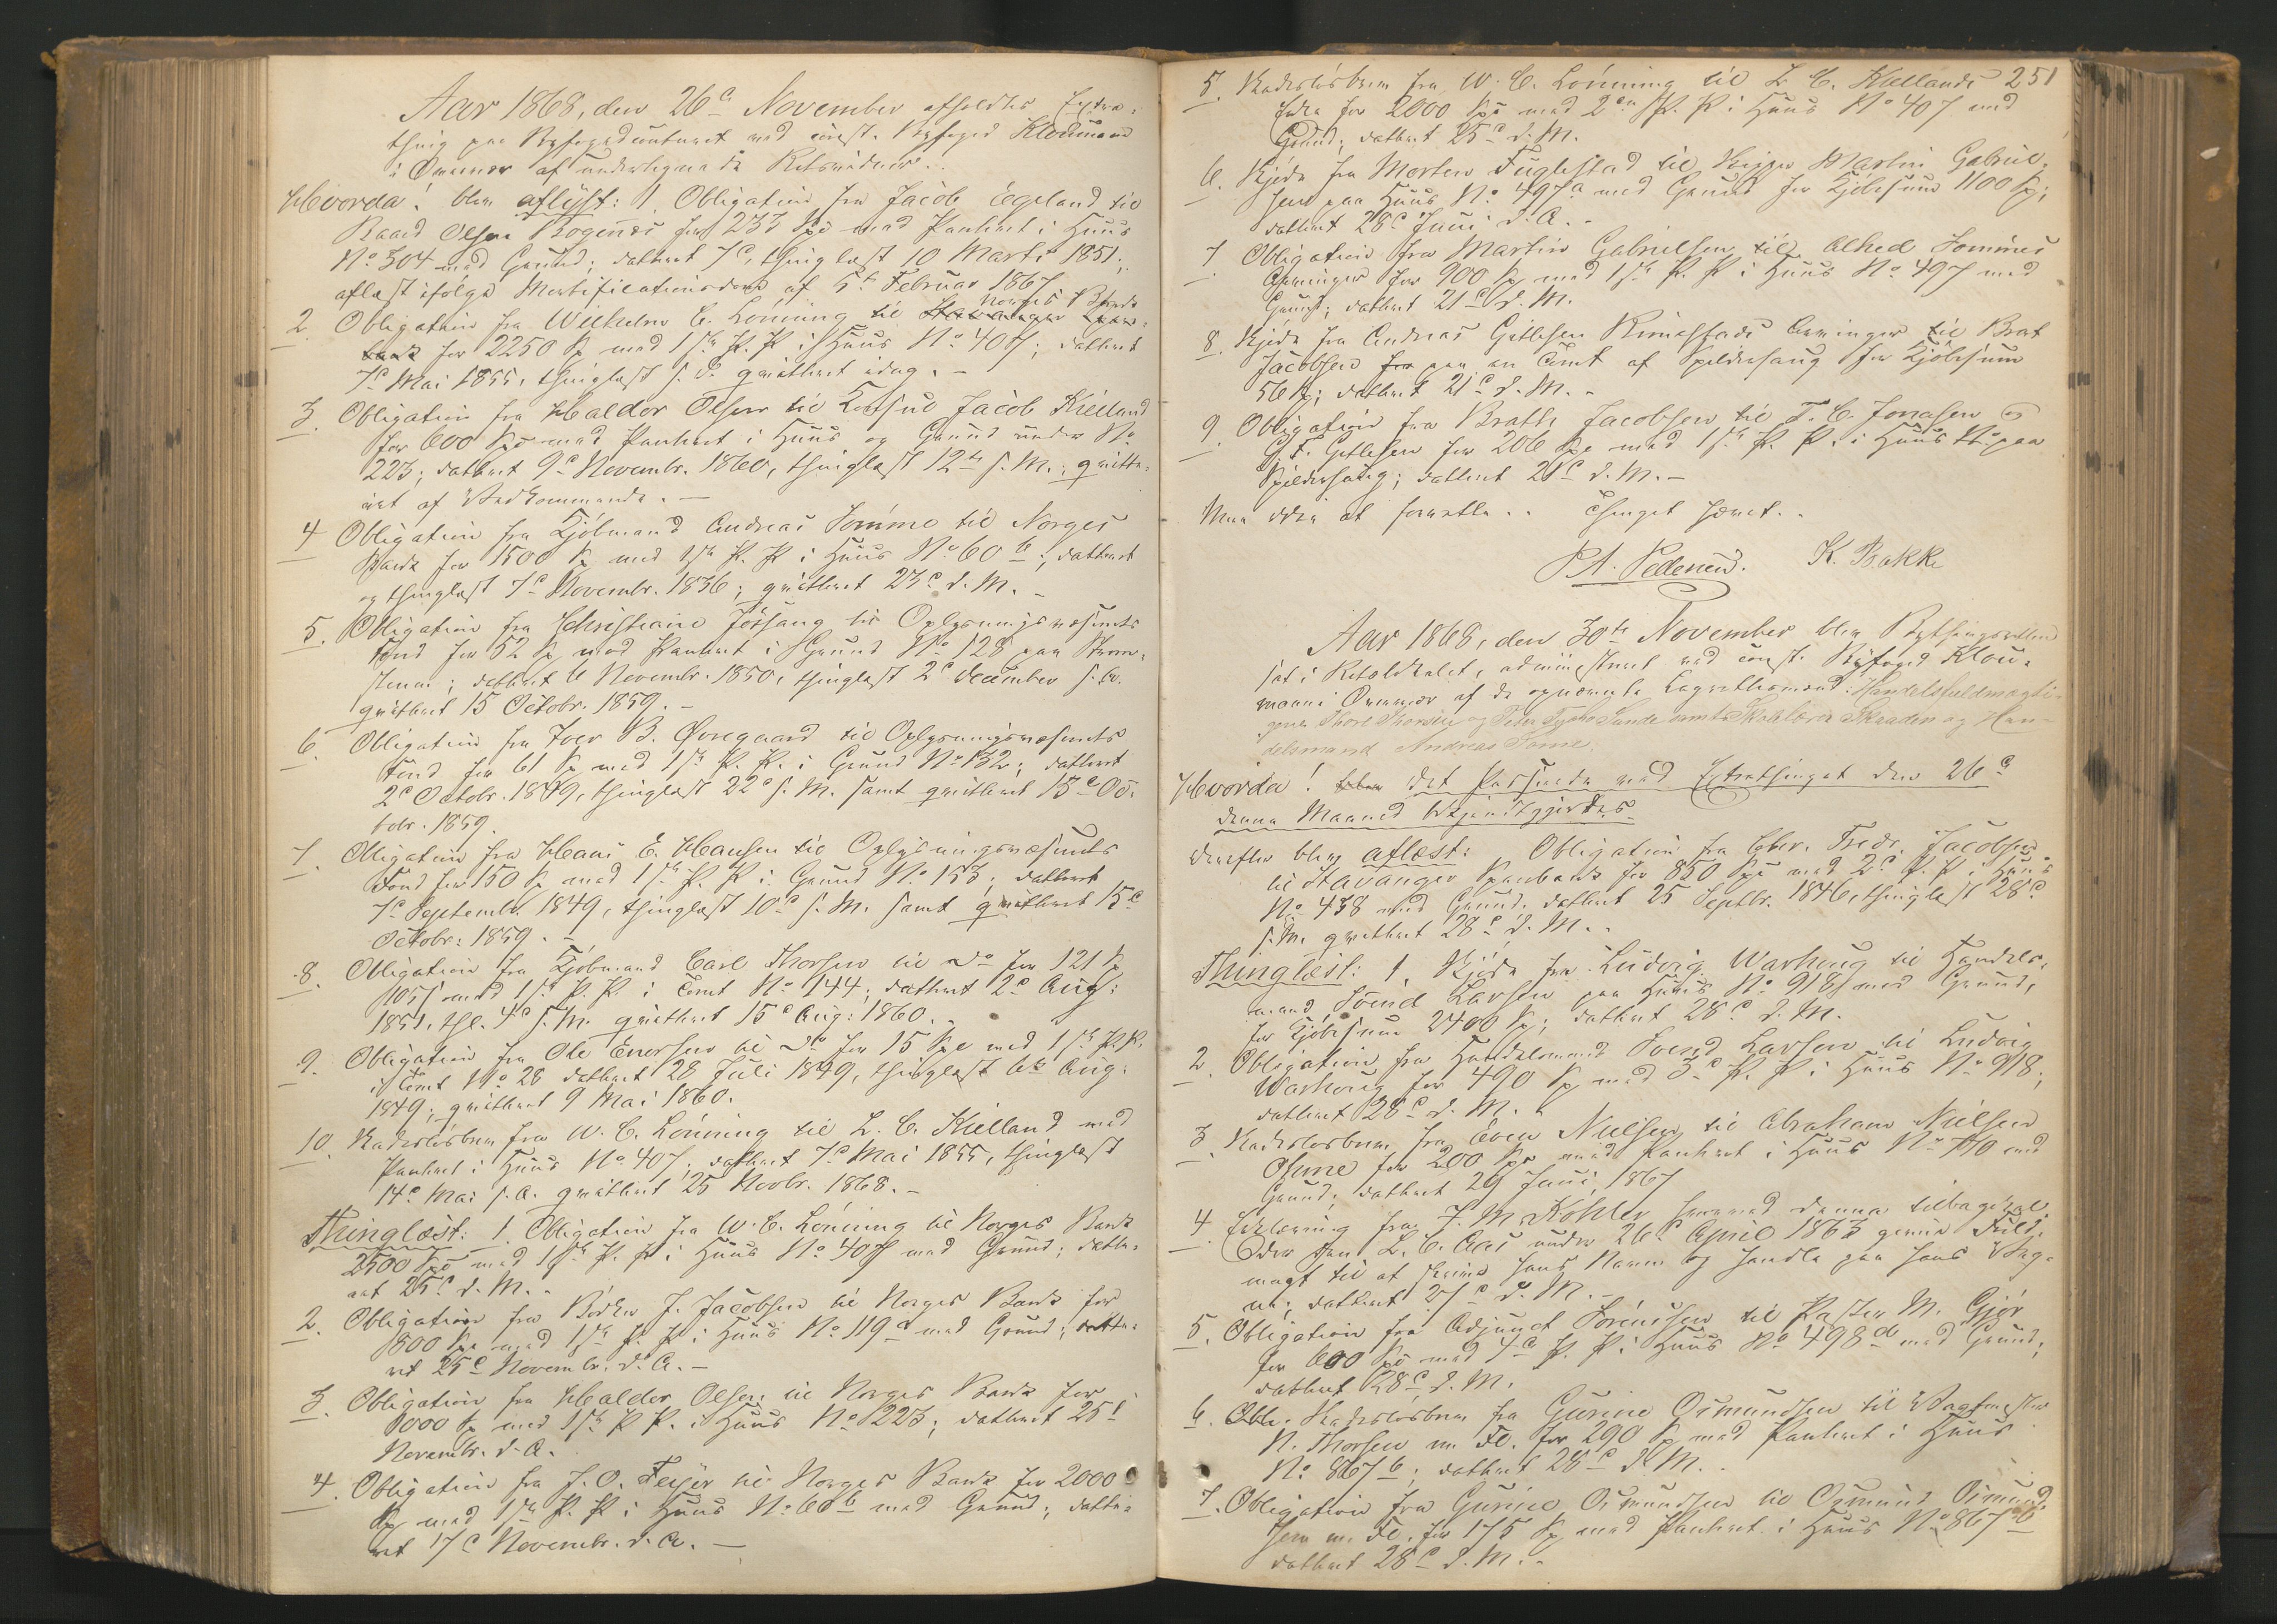 Aar 1868, den 26de November afholdtes Extra-
thing paa Byfogedcontoret ved const. Byfoged Klouman
i Overvær af undertegnede Retsvidner.
Hvorda! blev aflyst: 1. Obligation fra Jacob Egeland til
Baard Olsen Bogenæs for 233 Spd med Panteret i Huus
No 304 med Grund; dateret 7de, thinglæst 10 Marts 1851;
aflæst ifølge Mortificationsdom af 5te Februar 1867
2. Obligation fra Wilhelm C. Lønning til Stavanger Spare- Norges Bank
bank for 2250 Spd med 1ste P. P. i Huus No 407; dateret
7de Mai 1855, thinglæst s. D. qvitteret idag. -
3. Obligation fra Haldor Olsen til Konsul Jacob Kielland
for 600 Spd med Panteret i Huus og Grund under No
223; dateret 9de Novembr. 1860, thinglæst 12te s. M.; qvitte-
ret af Vedkommende. -
4 Obligation fra Kjøbmand Andreas Sømme til Norges
Bank for 1500 Spd med 1ste P. P. i Huus No 60 b; dateret
og thinglæst 7de Novembr. 1836; qvitteret 23de d. M. -
5. Obligation fra Christiane Jössang til Oplysningsvæsenets
Fond for 52 Spd med Panteret i Grund No 128 paa
dateret 6 Novembr. 1850, thinglæst 2de December s. A.
qvitteret 15 Octobr. 1859. -
6. Obligation fra Iver B. Øvregaard til Oplysningsvæsenets
Fond for 61 Spd med 1ste P. P. i Grund No 132; dateret
2de Octobr. 1849, thinglæst 22de s. M. samt qvitteret 15de Oc-
tobr. 1859.
7. Obligation fra Hans E. Hansen til Oplysningsvæsenets
Fond for 150 Spd med 1ste P. P. i Grund No 153; dateret
7de Septembr. 1849, thinglæst 10de s. M. samt qvitteret 15de
Octobr: 1859. -
8. Obligation fra Kjøbmand Carl Thorsen til Do for 121 Spd
105 s med 1ste P. P. i Tomt No 144; dateret 2de Aug:
1851, thgl. 4de s. M. qvitteret 15de Aug: 1860.
9. Obligation fra Ole Enersen til Do for 15 Spd med 1ste P. P.
i Tomt No 28 dateret 28 Juli 1849, thinglæst 6te Aug:
1849; qvitteret 9 Mai 1860.
10. Skadesløsbrev fra W. C. Lønning til L. C. Kielland med
Panteret i Huus No 407; dateret 7de Mai 1855, thinglæst
14de Mai s. A. qvitteret 25 Novbr. 1868. -
Thinglæst: 1. Obligation fra W. C. Lønning til Norges Bank
2500 Spd med 1ste P. P. i Huus No 407 med Grund; date-
ret 25de d. M. -
2. Obligation fra Bødker J. Jacobsen til Norges Bank for
1800 Spd med 1ste P. P. i Huus No 119 a med Grund; date-
ret 25de Novembr. d. A. -
3. Obligation fra Haldor Olsen til Norges Bank for
1000 Spd med 1ste P. P. i Huus No 223; dateret 25de
Novembr. d. A.
4. Obligation fra J. O. Feyer til Norges Bank for 2000
Spd med 1ste P. P. i Huus No 60 b med Grund; date-
ret 17de Novembr. d. A. -
251
5. Skadesløsbrev fra W. C. Lønning til L. C. Kiellands
for 2000 Spd med 2den P. P. i Huus No 407 med
Grund; dateret 25de d. M.
6. Skjøde fra Morten Fuglestad til Skipper Martin Gabriel-
sen paa Huus No 497 a med Grund for Kjøbesum 1100 Spd;
dateret 28de Juni d. A. -
7. Obligation fra Martin Gabrielsen til Alhed Sømmes
Arvinger for 900 Spd med 1ste P. P. i Huus No 497 med
Grund; dateret 21de d. M.
8. Skjøde fra Andreas Gitlesen Rimestads Arvinger til Brat
Jacobsen fra paa en Tomt af Spilderhaug for Kjøbesum
56 Spd; dateret 21de d. M. -
9. Obligation fra Brathe Jacobsen til T. C. Jonasen og
G. T. Gitlesen for 206 Spd med 1ste P. P. i Huus No paa
Spilderhaug; dateret 21de d. M. -
Mere ikke at foretage. - Thinget hævet. -
P. A. Pedersen. K. Bakke
Aar 1868, den 30te November blev Bythingsretten
sat i Retslokalet, administreret ved const. Byfoged Klou-
man i Overvær af de opnævnte Lagrettesmænd: Handelsfuldmægti-
gerne Thore Thorsen og Peter Tycho Sunde samt Skolelærer Skaaden og Han-
delsmand Andreas Sømme.
Hvorda! blev det Passerede ved Extrathinget den 26de
denne Maaned bekjendtgjordes.
derefter blev aflæst: Obligation fra Chr. Fredr. Jacobsen
til Stavanger Sparebank for 850 Spd med 2de P. P. i Huus
No 438 med Grund. dateret 25 Septbr. 1846, thinglæst 28de
s. M. qvitteret 28de d. M. -
Thinglæst: 1. Skjøde fra Ludvig Warhoug til Handels-
mand Svend Larsen paa Huus No 918 med Grund,
for Kjøbesum 2400 Spd; dateret 28de d. M.
2. Obligation fra Handelsmand Svend Larsen til Ludvig
Warhoug for 490 Spd med 3de P. P. i Huus No 918;
dateret 28de d. M. -
3. Skadesløsbrev fra Even Nielsen til Abraham Nielsen
for 200 Spd med Panteret i Huus No 710 med
Grund; dateret 29 Juni 1867
4. Erklæring fra J. M. Köhler hvorved denne tilbagekal-
der den L. C. Aas under 26de April 1863 givne Fuld-
magt til at skrive hans Navn og handle paa hans Veg-
ne; dateret 27de d. M. -
5. Obligation fra Adjunct Sørensen til Pastor M. Gjør
for 600 Spd med P. P. i Huus No 498 d med Grund;
dateret 28de d. M.
6. Obl. Skadesløsbrev fra Gurine Osmundsen til Vagtmester
N. Thorsen m. Fl. for 290 Spd med Panteret i Huus
No 867 b; dateret 28de d. M.
7. Obligation fra Gurine Osmundsen til Osmund Osmund-
sen m. Fl. for 175 Spd med Panteret i Huus No 867 b
dateret 28de d. M. -